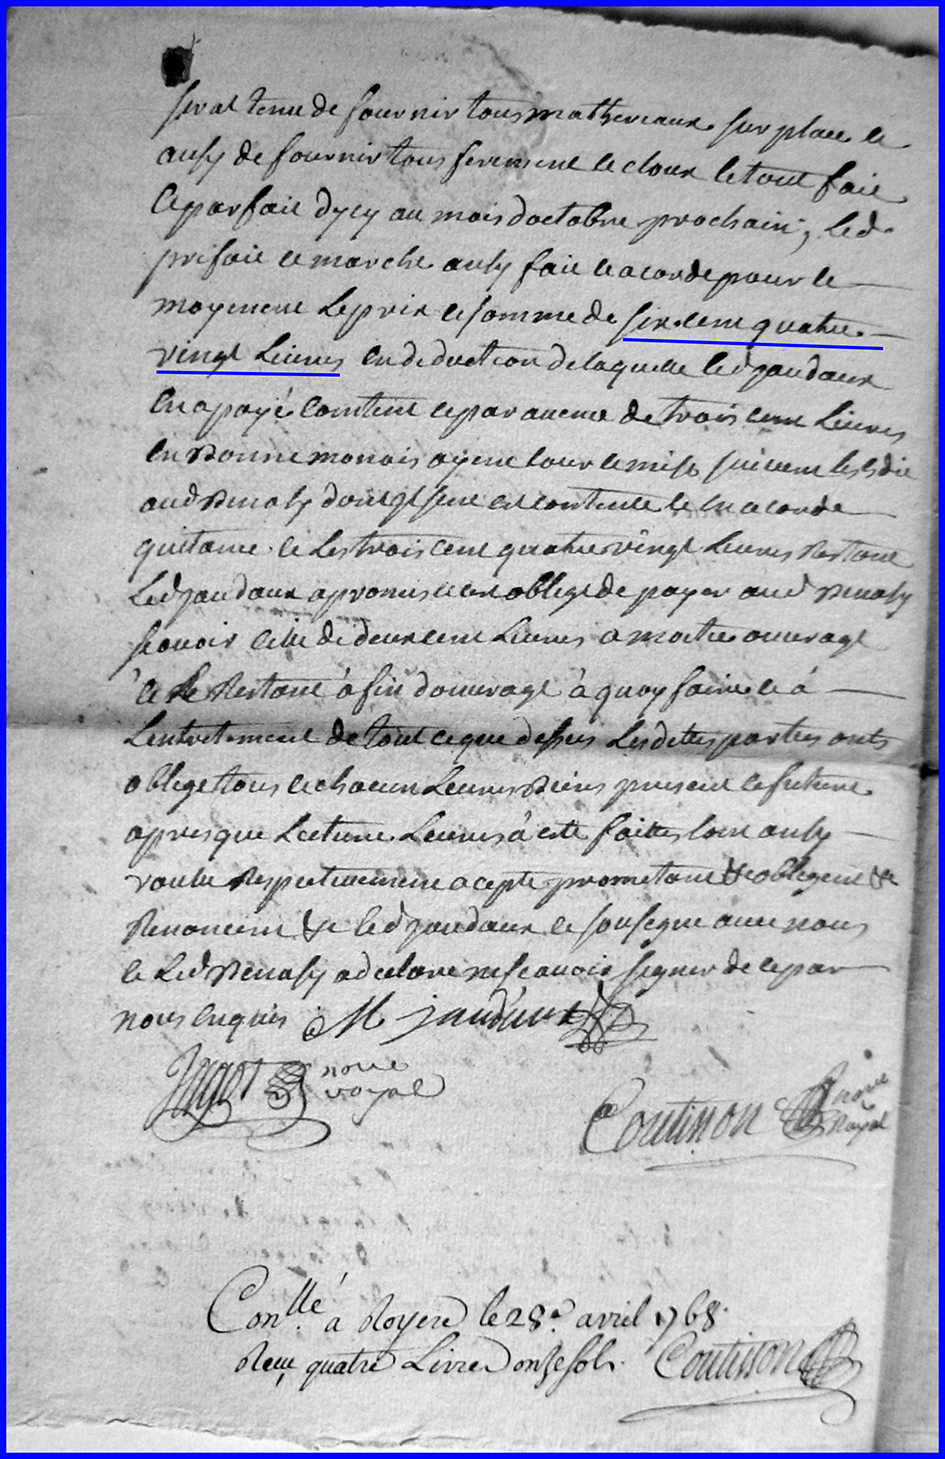 serat tenu de fournir tous mathereaux sur place et
ausy de fournir tous ferement et cloux le tout fait
et parfait dycy au mois doctobre prochain ; led.
prifait et marche ausy fait et acorde pour le
moyennt le prix et somme de six cent quatre
vingt Livres en deduction de laquelle led jandaux
en a payé contant et par avence de trois cent Livres
en bonne monois ayent cour et mise suivent les edit
aud Venasy dont il sent et contente et en acorde
quitance et les trois cent quatre vingt Livres Restant
Led jandaux a promis et cest obligé de payer aud Venasy
scavoir celle de deux cent Livres a moitie ouvrage
et le Restant à fin douvrage à quoy faire et à
Lentretement de tout ce que dessus Lesdittes parties onts
oblige tous et chacun Leurs biens present et future
apres que Lecture Leurs à esté faitte, lont ausy
voulu Respectivement acepté promettant &c obligent &c
Renoncent &c led jandaux et sousigné avec nous
et Led Venasy a declare ne scavoir signer de ce par
nous enquis M jandaux
Jagot nore royal
Coutisson nore Royal
Conllé à Royere le 28e avril 1768.
Reçu quatre Livres onze sols. Coutisson